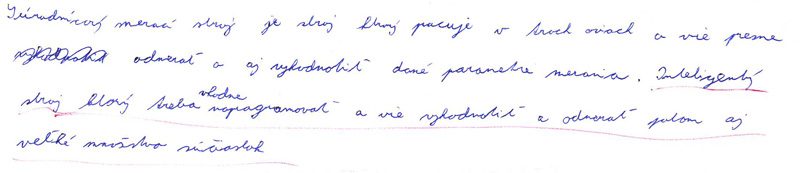 Súradnicový merací stroj je stroj ktorý pacuje v troch osiach a vie presne
odmerať a aj vyhodnotiť dané parametre merania. Inteligentý
stroj ktorý treba vhodne naprogramovať a vie vyhodnotiť a odmerať potom aj
veľké množstvo súčiastok